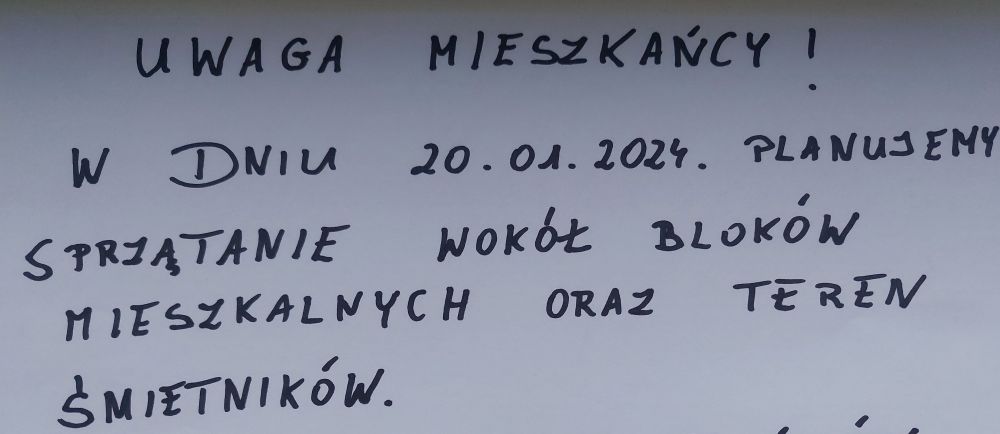 UWAGA MIESZKAŃCY!
W DNIU 20.01.2024. PLANUJEMY
SPRZĄTANIE WOKÓŁ BLOKÓW
MIESZKALNYCH ORAZ TEREN
ŚMIETNIKÓW.